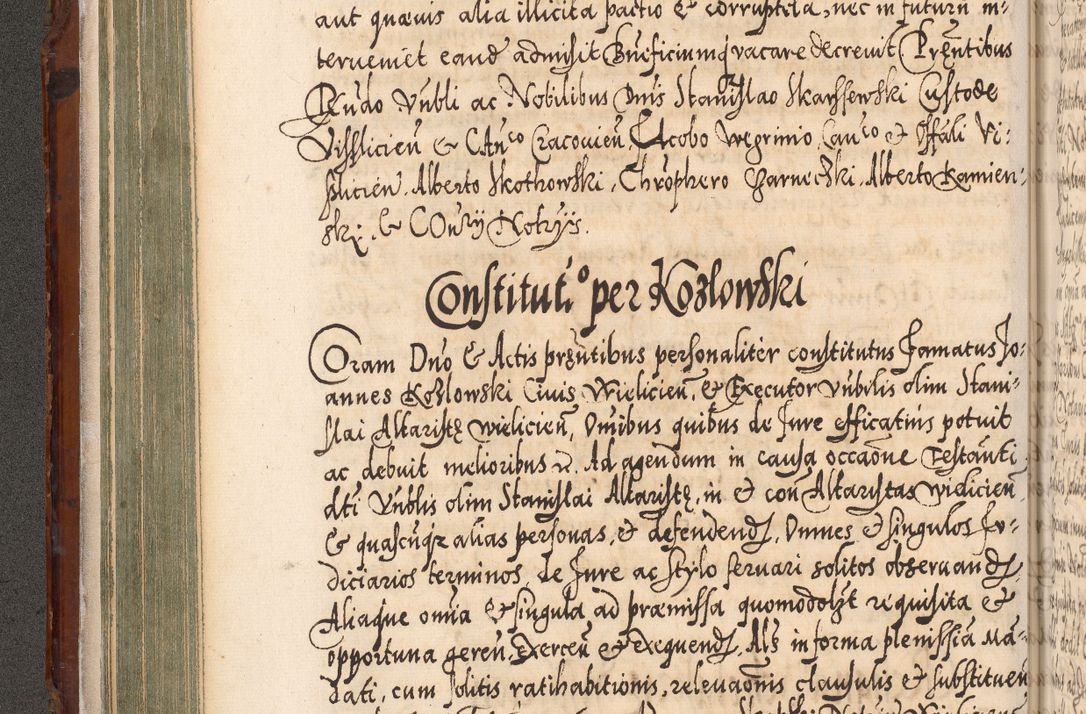 aut quæuis alia illicita pactio & corruptela, nec in futurũ in-
terueniet eand admisit Bñeficiumq̃ vacare decreuit Pręntibus
Rñdo Vñbli ac Nobilibus Dñis Stanislao Skarssewski Custode
Visslicieñ & CAñco Cracouieñ Jacobo Wegrinio Cañco & Offāli Vi-
slicieñ. Alberto Skothowski, Chrophero Czarnecski, Alberto Kamien-
ski, & Notrÿs.
Constitut.º per Kozlowski
Coram Dño & Actis pręntibus personaliter constitutus Famatus Jo-
annes Kozlowski Ciuis Wielicieñ, & Executor Vñbilis olim Stani-
slai Altaristę wielicieñ, Omibus quibus de Jure efficatius potuit
ac debuit melioribus Ad agendum in causa occaõne Testāti
dti Vñblis olim Stanislai Altaristę, in & coñ Altaristas wielicieñ
& quascuq̃z alias personas, & defendend, Omnes & singulos Ju-
diciarios terminos, de Jure ac stylo seruari solitos obseruand,
Aliaque omia & singula ad præmissa quomodolzt requisita &
opportuna gereñ, Exerceñ & Exequend, Als in forma plenissia Mā-
dati, cum solitis ratihabitionis, releuaõnis clausulis & substitueñ